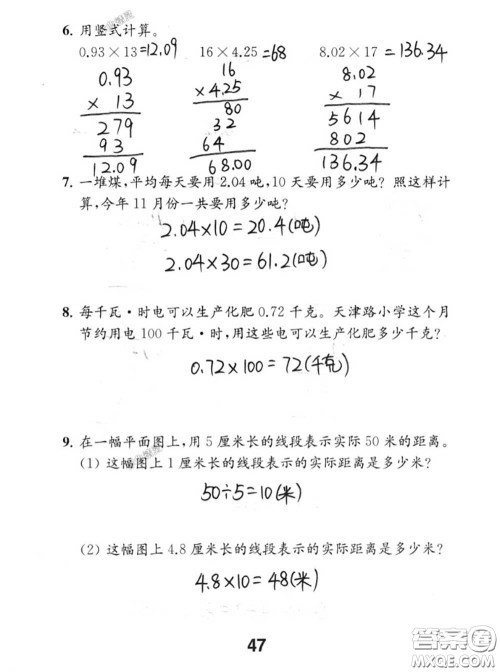 6. 用竖式计算。
0.93×13=12.09 16×4.25=68 8.02×17=136.34
0.93 16 8.02
×13 ×4.25 ×17
279 80 5614
93 32 802
12.09 64 136.34
68.00
7. 一堆煤,平均每天要用2.04吨,10天要用多少吨?照这样计
算,今年11月份一共要用多少吨?
2.04×10=20.4(吨)
2.04×30=61.2(吨)
8. 每千瓦·时电可以生产化肥0.72千克。天津路小学这个月
节约用电100千瓦·时,用这些电可以生产化肥多少千克?
0.72×100=72(千克)
9. 在一幅平面图上,用5厘米长的线段表示实际50米的距离。
(1) 这幅图上1厘米长的线段表示的实际距离是多少米?
50÷5=10(米)
(2) 这幅图上4.8厘米长的线段表示的实际距离是多少米?
4.8×10=48(米)
47
答案圈
MXQE.COM